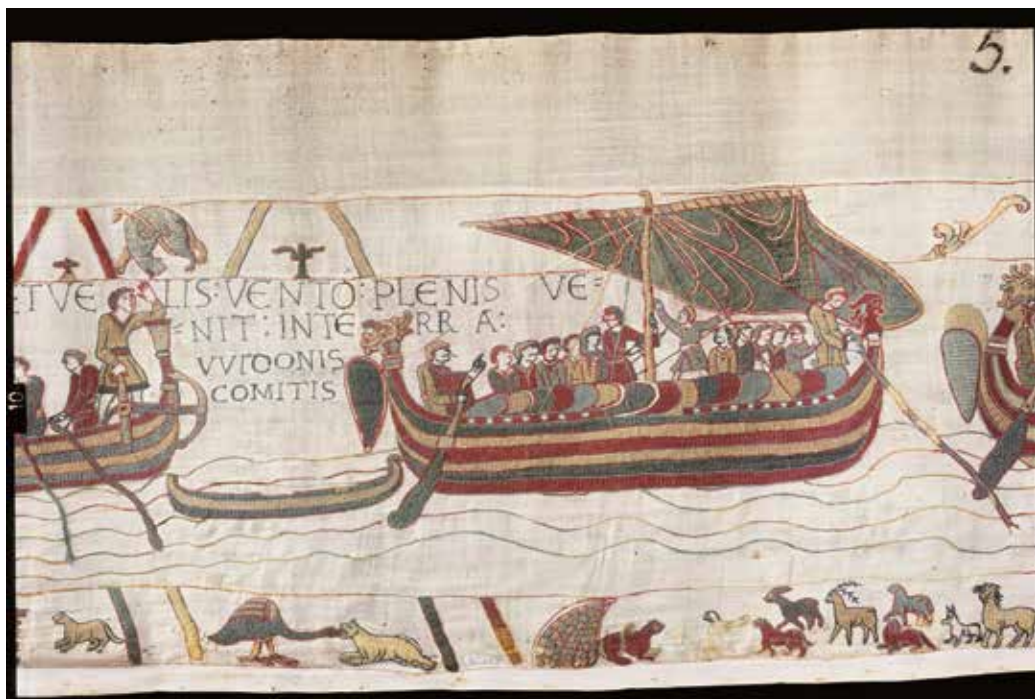 5.
ET VE LIS: VENTO: PLENIS VE=
=NIT: IN TE RR A:
VVIDONIS
COMITIS
10